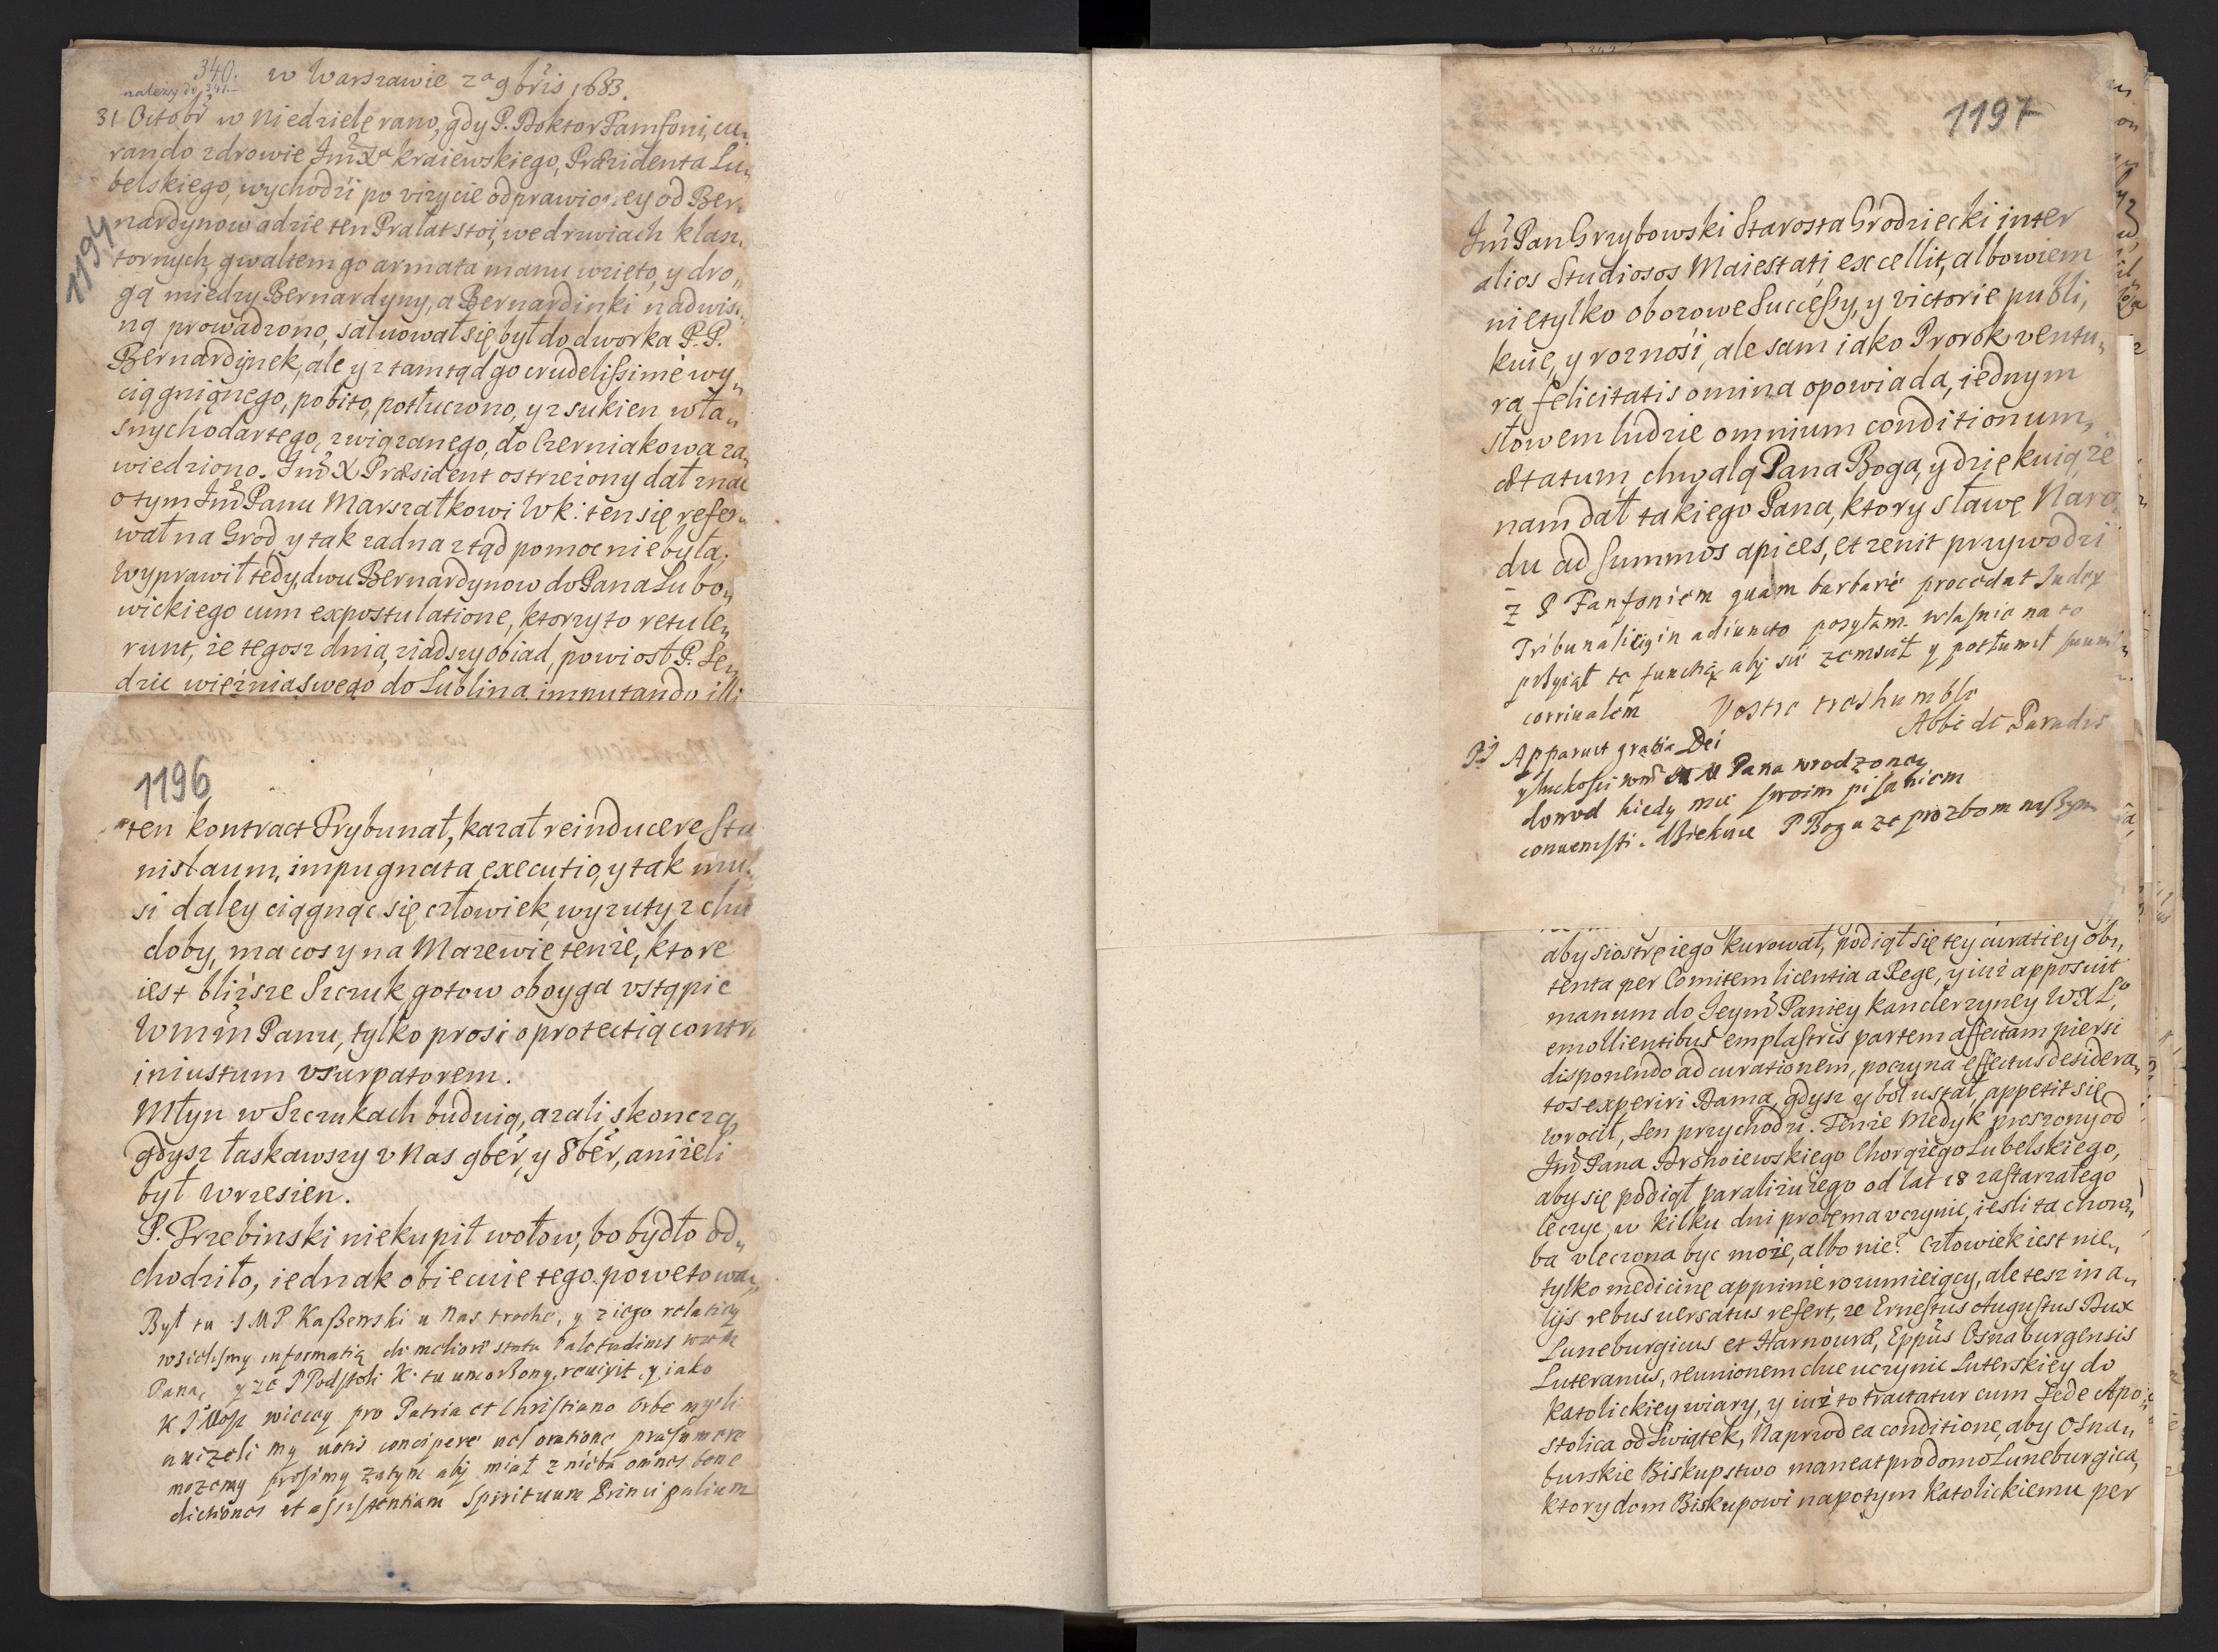 340.
należy do 341.
w Warszawie 2ª 9bris 1683.
31 Octobr w Niedzielę rano, gdy P. Doktor Tamfoni, cu„
rando zdrowie Jmć Xa Kraiewskiego, Præzidenta Lu„
belskiego, wychodzi po vizycie odprawioney od Ber„
nardynow gdzie ten Prałat stoi, we drzwiach klasz„
tornych, gwałtem go armata manu wzięto, y dro„
gą między Bernardyny, a Bernardinki nad wis„
ną prowadzono, salwował się był do dworka P.P.
Bernardynek, ale y z tamtąd go crudelissimè wy„
ciągnionego, pobito, potłuczono, y z sukien wła„
snych odartego, związanego, do Czerniakowa za„
wiedziono. Jmć X Præsident ostrzeżony dał znać
o tym Jmć Panu Marszałkowi WK: ten się refero„
wał na Grod y tak żadna ztąd pomoc nie była.
Wyprawił tedy, dwu Bernardynow do Pana Lubo„
wickiego cum expostulatione, ktorzy to retule„
runt, że tegosz dnia, ziadszy obiad, powiosł P. Sę„
dzic więzniá swego do Lublina imputando illi
1194
1196
ten kontract Trybunał, kazał reinducere Sta
nislaum, impugnata executio, y tak mu„
si daley ciągnąc się człowiek, wyzuty z chu
doby, ma cos y na Mazewie tenże, ktore
iest bliższe Szczuk, gotow oboyga vstąpic
Wmm Panu, tylko prosi o protectią contra
iniustum vsurpatorem.
Młyn w Szczukach buduią, azali skonczą,
gdysz łaskawszy v Nas 9ber, y 8ber, aniżeli
był Wrzesien.
P. Trzebinski nie kupił wołow, bo bydło od„
chodziło, iednak obiecuie tego powetowac„
Był tu JMP Kaszewski u Nas trochę, y z iego relatiey
wzielismy informatią de meliori statu valetudinis wmm
Pana, y że P Podstoli K. tu umorzony, reuixit, y iako
K J Mosz wiecey pro Patria et Christiano Orbe mysli
anizeli my uotis concipere uel oratione præsumere
mozemy prosimy zatym aby miał z nieba omnes bene
dictiones et assistentiam Spirituum Principalium
1197
Jmć Pan Grzybowski Starosta Grodziecki inter
alios Studiosos Maiestati excellit, albowiem
nie tylko obozowe Successy, y victorie publi„
kuie, y roznosi, ale sam iako Prorok ventu„
ra felicitatis omina opowiada, iednym
słowem ludzie omnium conditionum,
ætatum, chwalą Pana Boga, y dziękuią, że
nam dał takiego Pana, ktory sławę Naro„
du ad summos apices, et zenit przywodzi
Z P Tanfoniem quam barbarè procedat Judex
Tribunalicij in adiuncto posyłam. własnie na to
przyiął tę functią aby się zemscił y potłumił suum
corriualem Vostre treshumble
Abbé de Paradis
PS Apparuit gratia Dei
y ludzkosci wm M M Pana wrodzoney
dowod kiedy mię swoim pisaniem
conuenisti. dziekuie P Bogu ze prozbom naszym
aby siostrę iego kurował, podiął się tey curatiey ob„
tenta per Comitem licentia a Rege, y iuż apposuit
manum do Jeymć Paniey Kanclerzyney WXL,
emollientibus emplastris partem affectam piersi
disponendo ad curationem, poczyna effectus desidera„
tos experiri Dama, gdysz y bol ustał, appetit się
wrocił, sen przychodzi. Tenże Medyk proszony od
Jmć Pana Drohoiewskiego Chorążego Lubelskiego,
aby się podiął paraliżu iego od lat 18 zastarzałego
leczyc, w kilku dni probę ma vczynic, iesli ta choro„
ba vleczona byc może, albo nie? Człowiek iest nie„
tylko medicinę apprimè rozumieiący, ale tesz in a„
lijs rebus versatus refert, że Ernestus Augustus Dux
Luneburgicus et Hannoura, Eppûs Osnaburgensis
Luteranus, reunionem chce uczynic Luterskiey do
Katolickiey wiary, y iuż to tractatur cum Sede Apo„
stolica od Swiątek, Naprzod ea conditione, aby Osna„
burskie Biskupstwo maneat pro domo Luneburgica,
ktory dom Biskupowi napotym Katolickiemu per